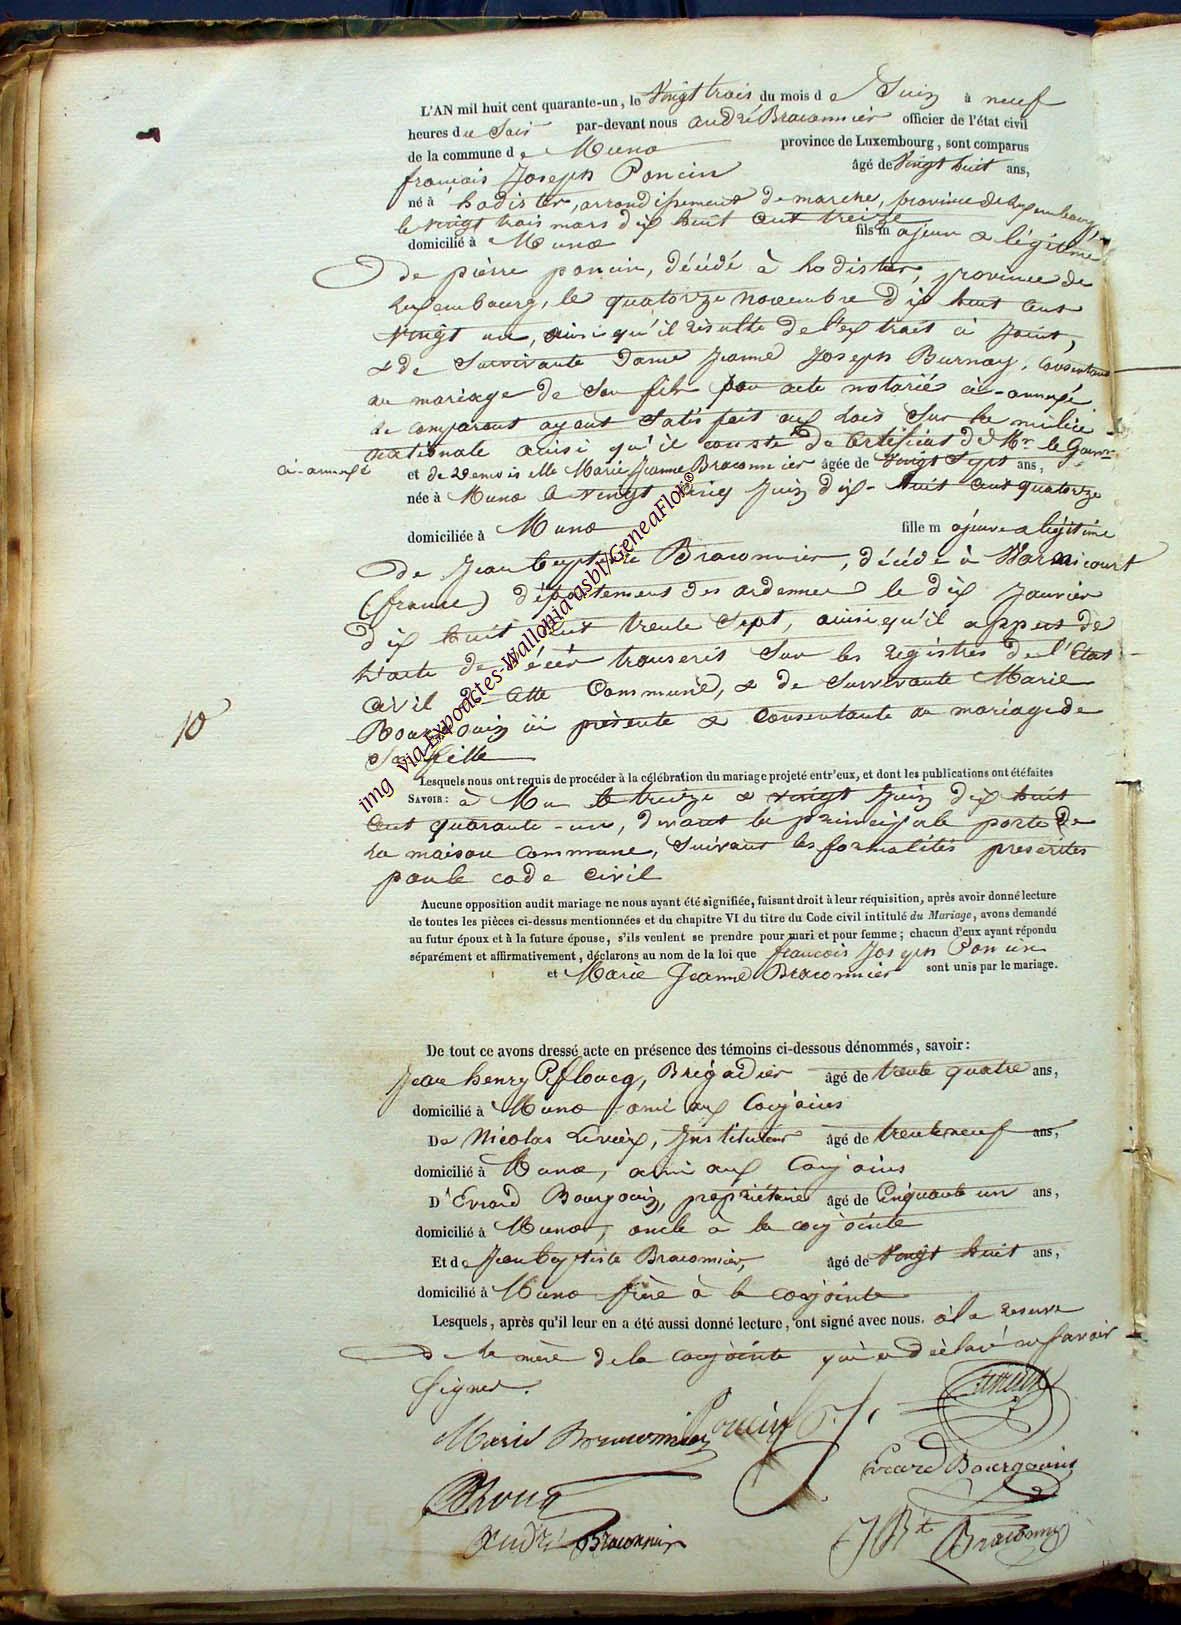 L'AN mil huit cent quarante-un, le Vingt trois du mois de Juin à neuf
heures du Soir par-devant nous andré Braconnier officier de l'état civil
de la commune de Muno province de Luxembourg, sont comparus
françois Joseph Poncin âgé de Vingt huit ans,
né à hodister, arrondissement de marche, province de Luxembourg,
le vingt trois mars dix huit cent treize
domicilié à Muno fils majeur & légitime
De pierre poncin, décédé à hodister, province de
Luxembourg, le quatorze novembre dix huit cent
vingt un, ainsi qu'il résulte de l'extrait ci joint,
& de Survivante dame Jeanne Joseph Burnay, consentant
au mariage de Son fils par acte notarié ci-annexé
le comparant ayant Satisfait aux lois Sur la milice
nationale ainsi qu'il conste du Certificat de Mr. le Gouvr.
ci-annexé
et de demoiselle Marie Jeanne Braconnier âgée de Vingt Sept ans,
née à Muno le vingt cinq Juin dix-huit cent quatorze
domiciliée à Muno fille majeure & légitime
De Jean baptiste Braconnier, décédé à Warnicourt
(france) département des ardennes le dix Janvier
dix huit cent trente Sept, ainsi qu'il appert de
L'acte de décès transcrit Sur les registres de l'Etat-
civil de cette Commune, & de Survivante Marie
Bourgouin ici présente & consentante au mariage de
Sa fille
10
Lesquels nous ont requis de procéder à la célébration du mariage projeté entr'eux, et dont les publications ont été faites
SAVOIR: à Muno le treize & vingt Juin dix huit
cent quarante-un, devant la principale porte de
la maison commune, Suivant les formalités prescrites
par le code civil
Aucune opposition audit mariage ne nous ayant été signifiée, faisant droit à leur réquisition, après avoir donné lecture
de toutes les pièces ci-dessus mentionnées et du chapitre VI du titre du Code civil intitulé du Mariage, avons demandé
au futur époux et à la future épouse, s'ils veulent se prendre pour mari et pour femme; chacun d'eux ayant répondu
séparément et affirmativement, déclarons au nom de la loi que françois Joseph Poncin
et Marie Jeanne Braconnier sont unis par le mariage.
De tout ce avons dressé acte en présence des témoins ci-dessous dénommés, savoir:
Jean henry, Brigadier âgé de trente quatre ans,
domicilié à Muno ami aux Conjoints
De Nicolas, Instituteur âgé de trente neuf ans,
domicilié à Muno, ami aux Conjoints
D'Evrard Bourgouin, propriétaire âgé de Cinquante un ans,
domicilié à Muno, oncle à la conjointe
Et de Jean baptiste Braconnier, âgé de Vingt huit ans,
domicilié à Muno frère à la conjointe
Lesquels, après qu'il leur en a été aussi donné lecture, ont signé avec nous. à la reserve
De la mère de la conjointe qui a déclaré ne Savoir
Signer.
Marie Braconnier Poncin f. J.
Evrard Bourgouin
André Braconnier
J Bte Braconnier
img via Expoactes-Wallonia asbl/GeneaFlor©